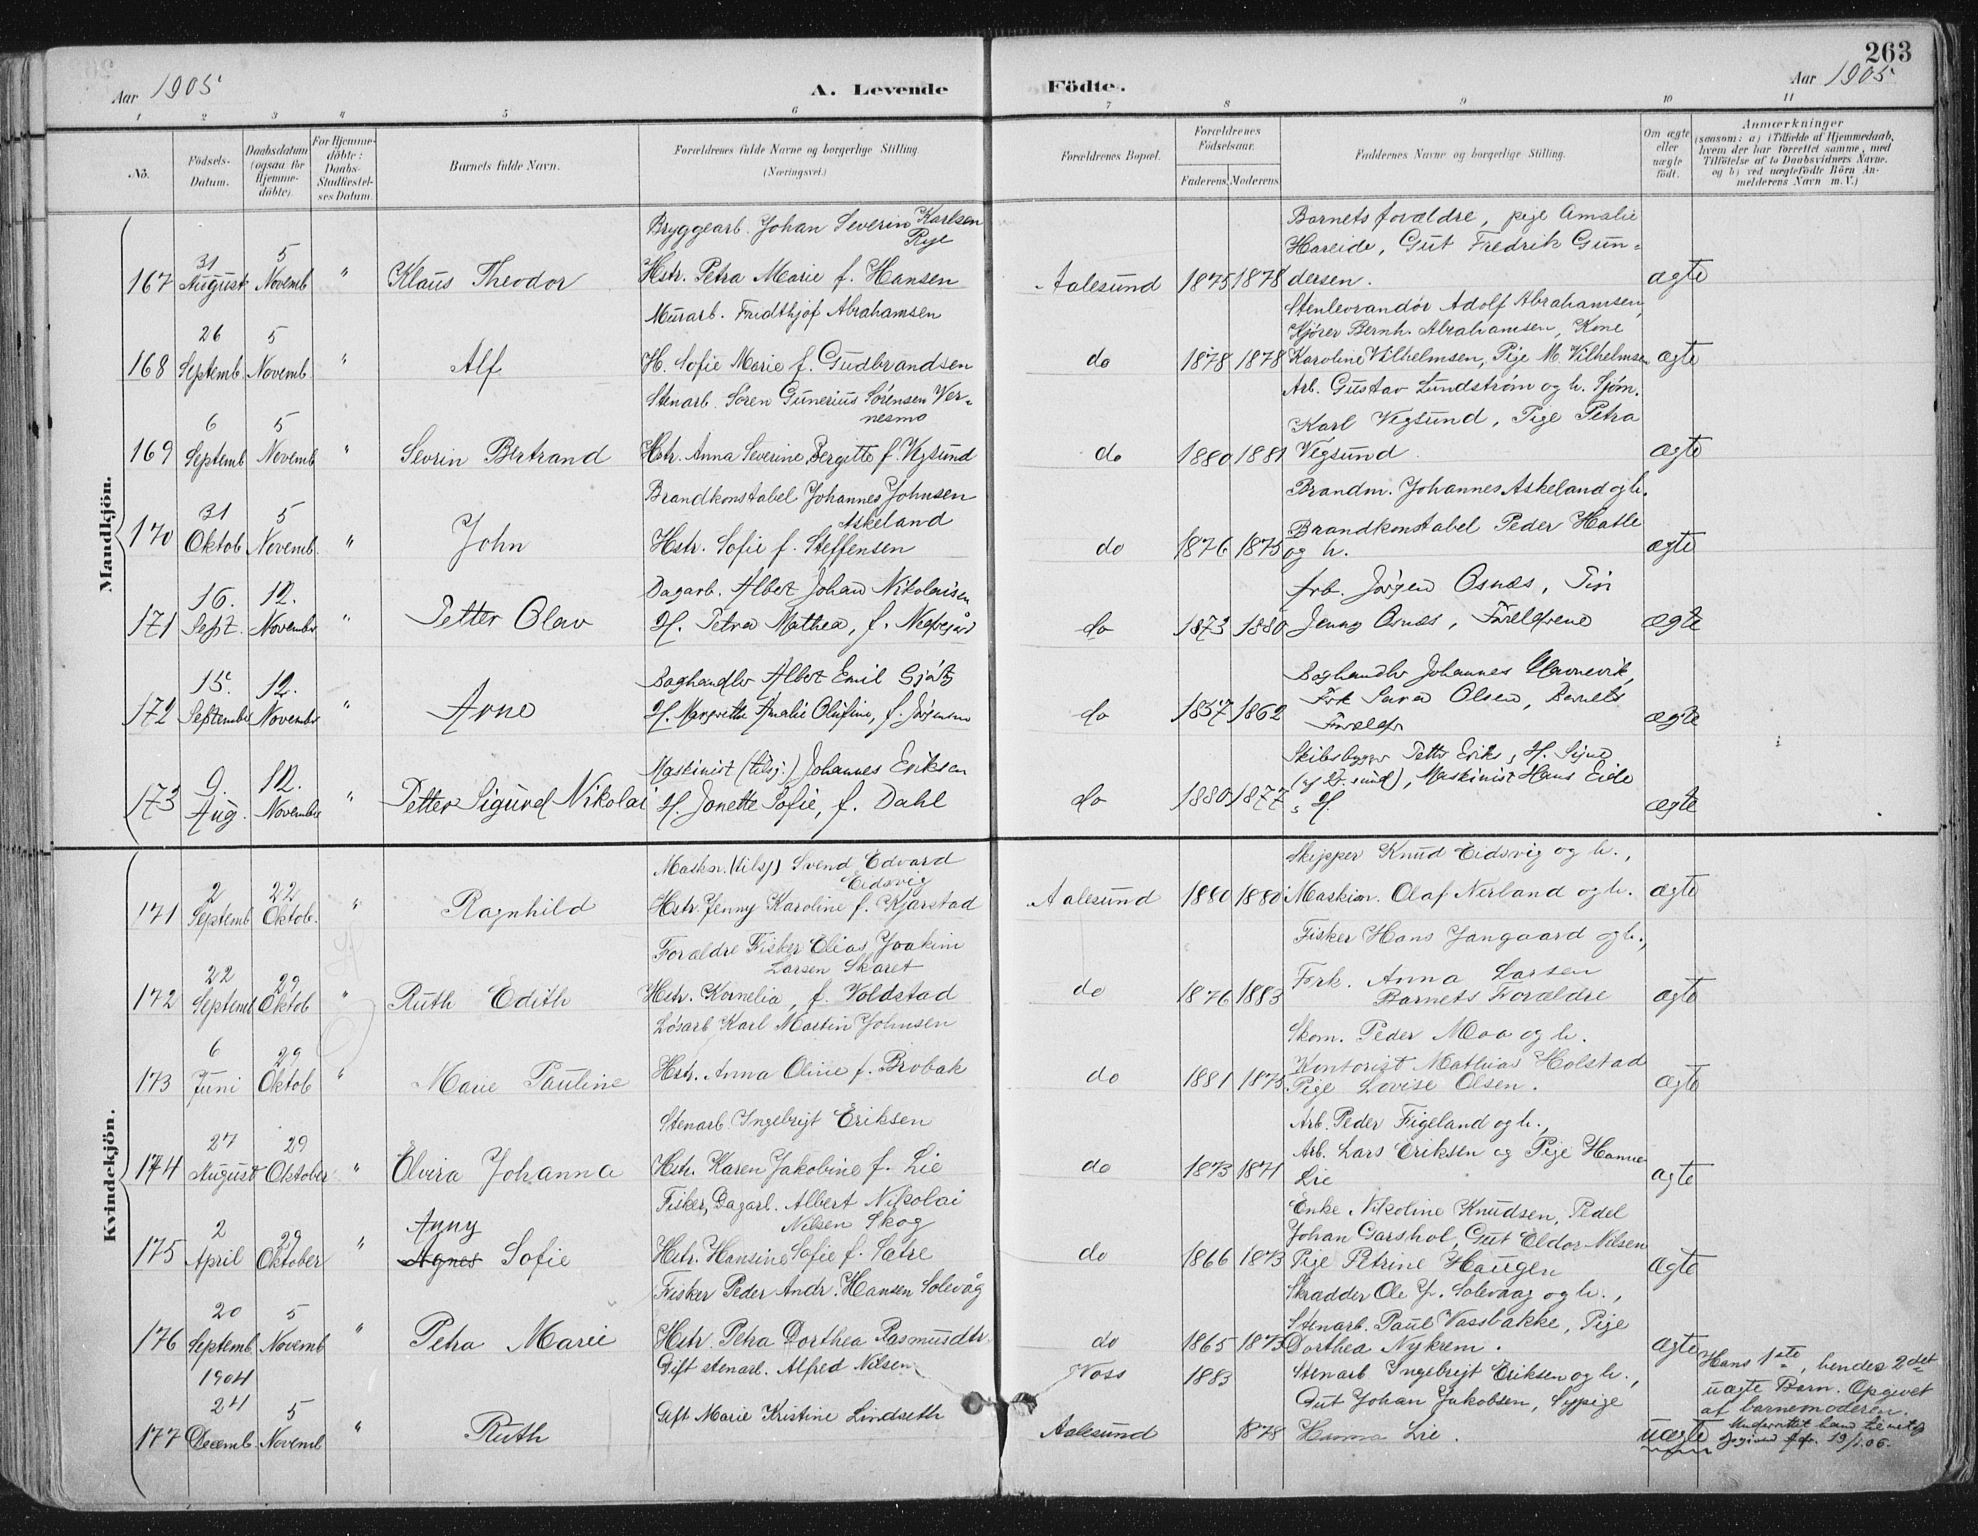 263
Aar 1905
A. Levende
Födte.
Aar 1905
1 2 3 4 5 6 7 8 9 10 11
No.
Födsels-Datum.
Daabsdatum (ogsaa for Hjemme-döbte).
For Hjemme-döbte: Daabs-Stadfæstel-ses Datum.
Barnets fulde Navn.
Forældrenes fulde Navne og borgerlige Stilling. (Næringsvei.)
Forældrenes Bopæl.
Forældrenes Födselsaar.
Faderens. Moderens.
Faddernes Navne og borgerlige Stilling.
Om ægte eller uægte födt.
Anmærkninger
(saasom: a) i Tilfælde af Hjemmedaab, hvem der har forrettet samme, med Tilföielse af to Daabsvidners Navne. og b) ved uægtefödte Börn An-melderens Navn m. V.)
Mandkjön.
Bryggearb. Johan Severin Karlsen
Rye
Barnets forældre, pige Amalie
Hareide, Gut Fredrik Gun-
167 31 August 5 Novemb. " Klaus Theodor Hstr. Petra Marie f. Hansen Aalesund 1875 1878 dersen. ægte
Murarb. Fridthjof Abrahamsen
Stenleverandør Adolf Abrahamsen,
Kjører Bernh. Abrahamsen, Kone
168 26 Septemb. 5 Novemb. " Alf H. Sofie Marie f. Gudbrandsen do 1878 1878 Karoline Vilhelmsen, Pige M. Vilhelmsen ægte
Stenarb. Søren Gunerius Sørensen Ver-
nesmo
Arb. Gustav Lundstrøm og h. Sjøm.
Karl Vegsund, Pige Petra
169 6 Septemb. 5 Novemb. " Sevrin Bertrand Hstr. Anna Severine Bergitte f. Vegsund do 1880 1881 Vegsund. ægte
Brandkonstabel Johannes Johnsen
Askeland
Brandm. Johannes Askeland og h.
Brandkonstabel Peder Hatle
170 31 Oktob. 5 Novemb. " John Hstr. Sofie f. Steffensen do 1876 1875 og h. ægte
Dagarb. Albert Johan Nikolaisen
Arb. Jørgen Osnæs,
171 16. Sept. 12. November " Petter Olav H. Petra Mathea, f. do 1873 1880 Jenny Osnæs, Forældrene ægte
Boghandler Albert Emil
Boghandler Johannes
Frk Sara Olsen, Barnets
172 15. September 12. November " Arne H. Margrethe Amalie Olufine, f. Jørgensen do 1857 1862 Forældre ægte
Maskinist (tilsj.) Johannes Eriksen
Skibsbygger Petter Eriks., H. Signe
Maskinist Hans Eide
173 9. Aug. 12. November " Petter Sigurd Nikolai H. Jonette Sofie, f. Dahl do 1880 1877 " H. ægte
Kvindekjön.
Maskn. (tilsj) Svend Edvard
Eidsvig
Skipper Knud Eidsvig og h.,
171 2 Septemb. 22 Oktob. " Ragnhild Hstr. Jenny Karoline f. Kjærstad Aalesund 1880 1880 Maskin. Olaf Nerland og h. ægte
Forældre Fisker Elias Joakim
Larsen Skaret
Fisker Hans Jangaard og h.,
Frk. Anna Larsen
172 22 Septemb 29 Oktob " Ruth Edith Hstr. Kornelia, f. Voldstad do 1876 1883 Barnets Forældre ægte
Løsarb Karl Martin Johnsen
Skom. Peder Moa og h.
Kontorist Mathias Holstad
173 6 Juni 29 Oktob " Marie Pauline Hstr. Anna Oline f. Brobak do 1881 1875 Pige Lovise Olsen. ægte
Stenarb. Ingebrigt Eriksen
Arb. Peder Figeland og h.,
Arb. Lars Eriksen og Pige Hanna
174 27 August 29 Oktober " Elvira Johanna Hstr. Karen Jakobine f. Lie do 1873 1871 Lie ægte
Fisker, Dagarb. Albert Nikolai
Nilsen Skog
Enke Nikoline Knudsen, Pedel
Johan Garshol, Gut Eldor Nilsen
Anny
175 2 April 29 Oktober " Agnes Sofie Hstr. Hansine Sofie f. Sætre do 1866 1873 Pige Petrine Haugen ægte
Fisker Peder Andr. Hansen Solevåg
Skrædder Ole J. Solevaag og h.,
Stenarb. Paul Vassbakke, Pige
176 20 Septemb. 5 Novemb " Petra Marie Hstr. Petra Dorthea Rasmusdtr. do 1865 1875 Dorthea Nykrem. ægte
Gift stenarb. Alfred Nilsen Voss 1883 Stenarb Ingebrigt Eriksen og h.,
Gut Johan Jakobsen, Sypige
1904
177 24 Decemb. 5 Novemb " Ruth Gift Marie Kristine Lindseth Aalesund 1878 Hanna Lie. uægte
Hans 1ste, hendes 2det
uægte Barn. Opgivet
af barnemoderen.
19/1.06.